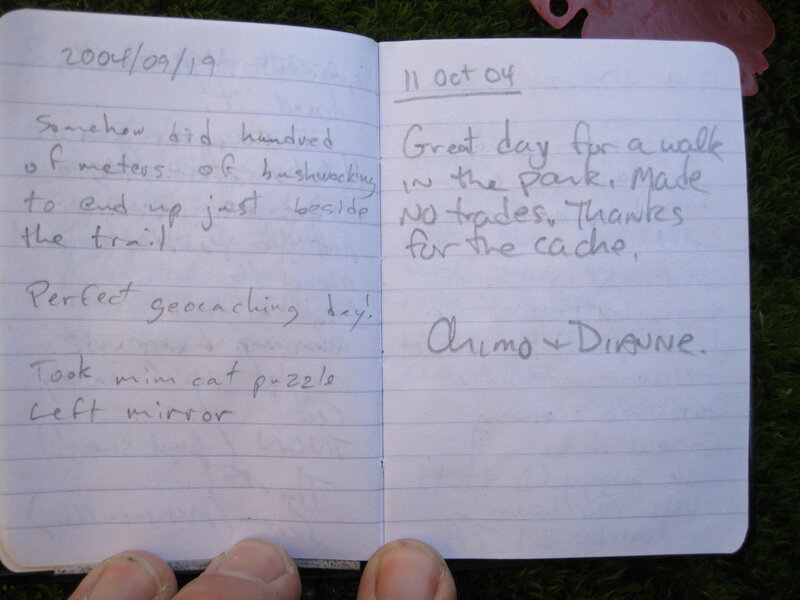 2004/09/19
Somehow did hundred
of meters of bushwacking
to end up just beside
the trail
Perfect geocaching day!
Took mini cat puzzle
Left mirror
11 Oct 04
Great day for a walk
in the park. Made
No trades. Thanks
for the cache.
Chimo + Dianne.